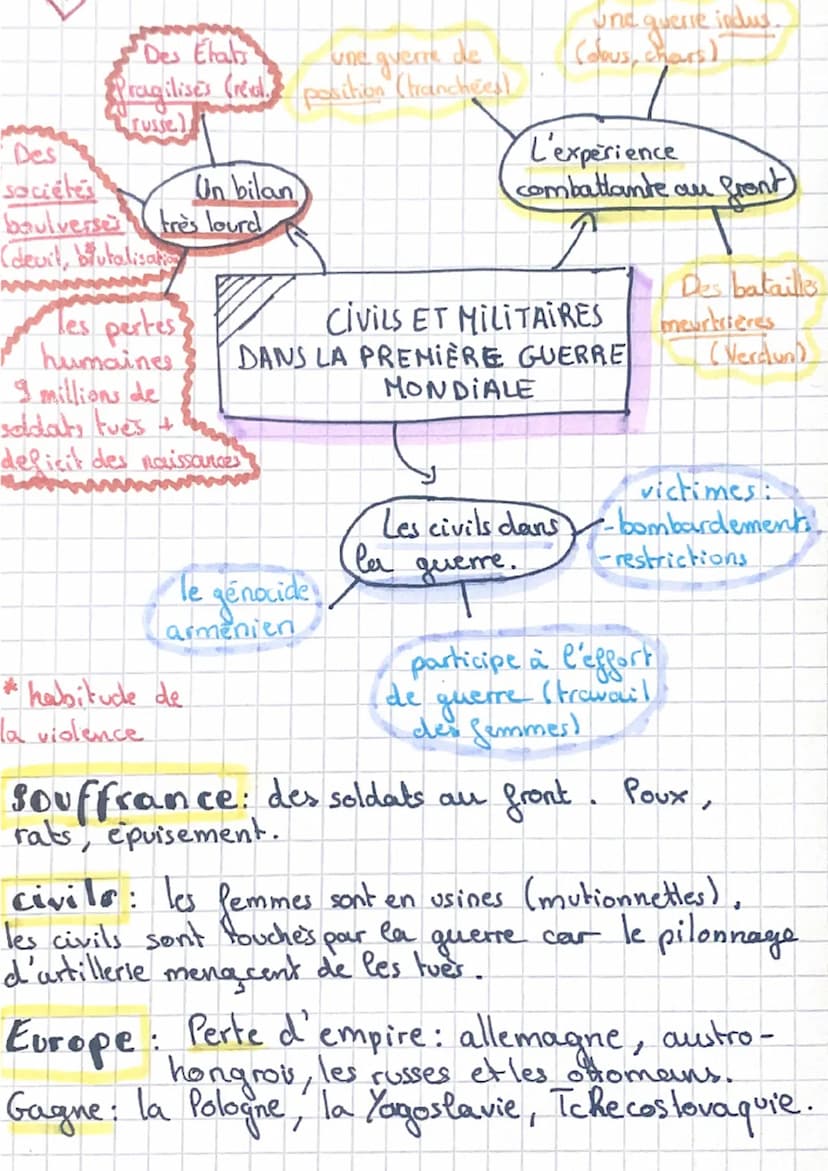 Des États
fragilisés (révol.
russe)
une guerre de
position (tranchées)
une guerre indus.
(obus, chars)
Des
sociétés
boulversés
(deuil, brutalisation
Un bilan
très lourd
L'expérience
combattante au front
les pertes
humaines
9 millions de
soldats tués +
deficit des naissances
CIVILS ET MILITAIRES
DANS LA PREMIÈRE GUERRE
MONDIALE
Des batailles
meurtrières
(Verdun)
Les civils dans
la guerre.
victimes :
- bombardements
- restrictions
le génocide
arménien
participe à l'effort
de guerre (travail
des femmes)
* habitude de
la violence
Souffrance : des soldats au front. Poux,
rats, épuisement.
civils : les femmes sont en usines (mutionnettes),
les civils sont touchés par la guerre car le pilonnage
d'artillerie menaçent de les tués.
Europe : Perte d'empire : allemagne, austro-
hongrois, les russes et les ottomans.
Gagne : la Pologne, la Yagoslavie, Tchecoslovaquie.